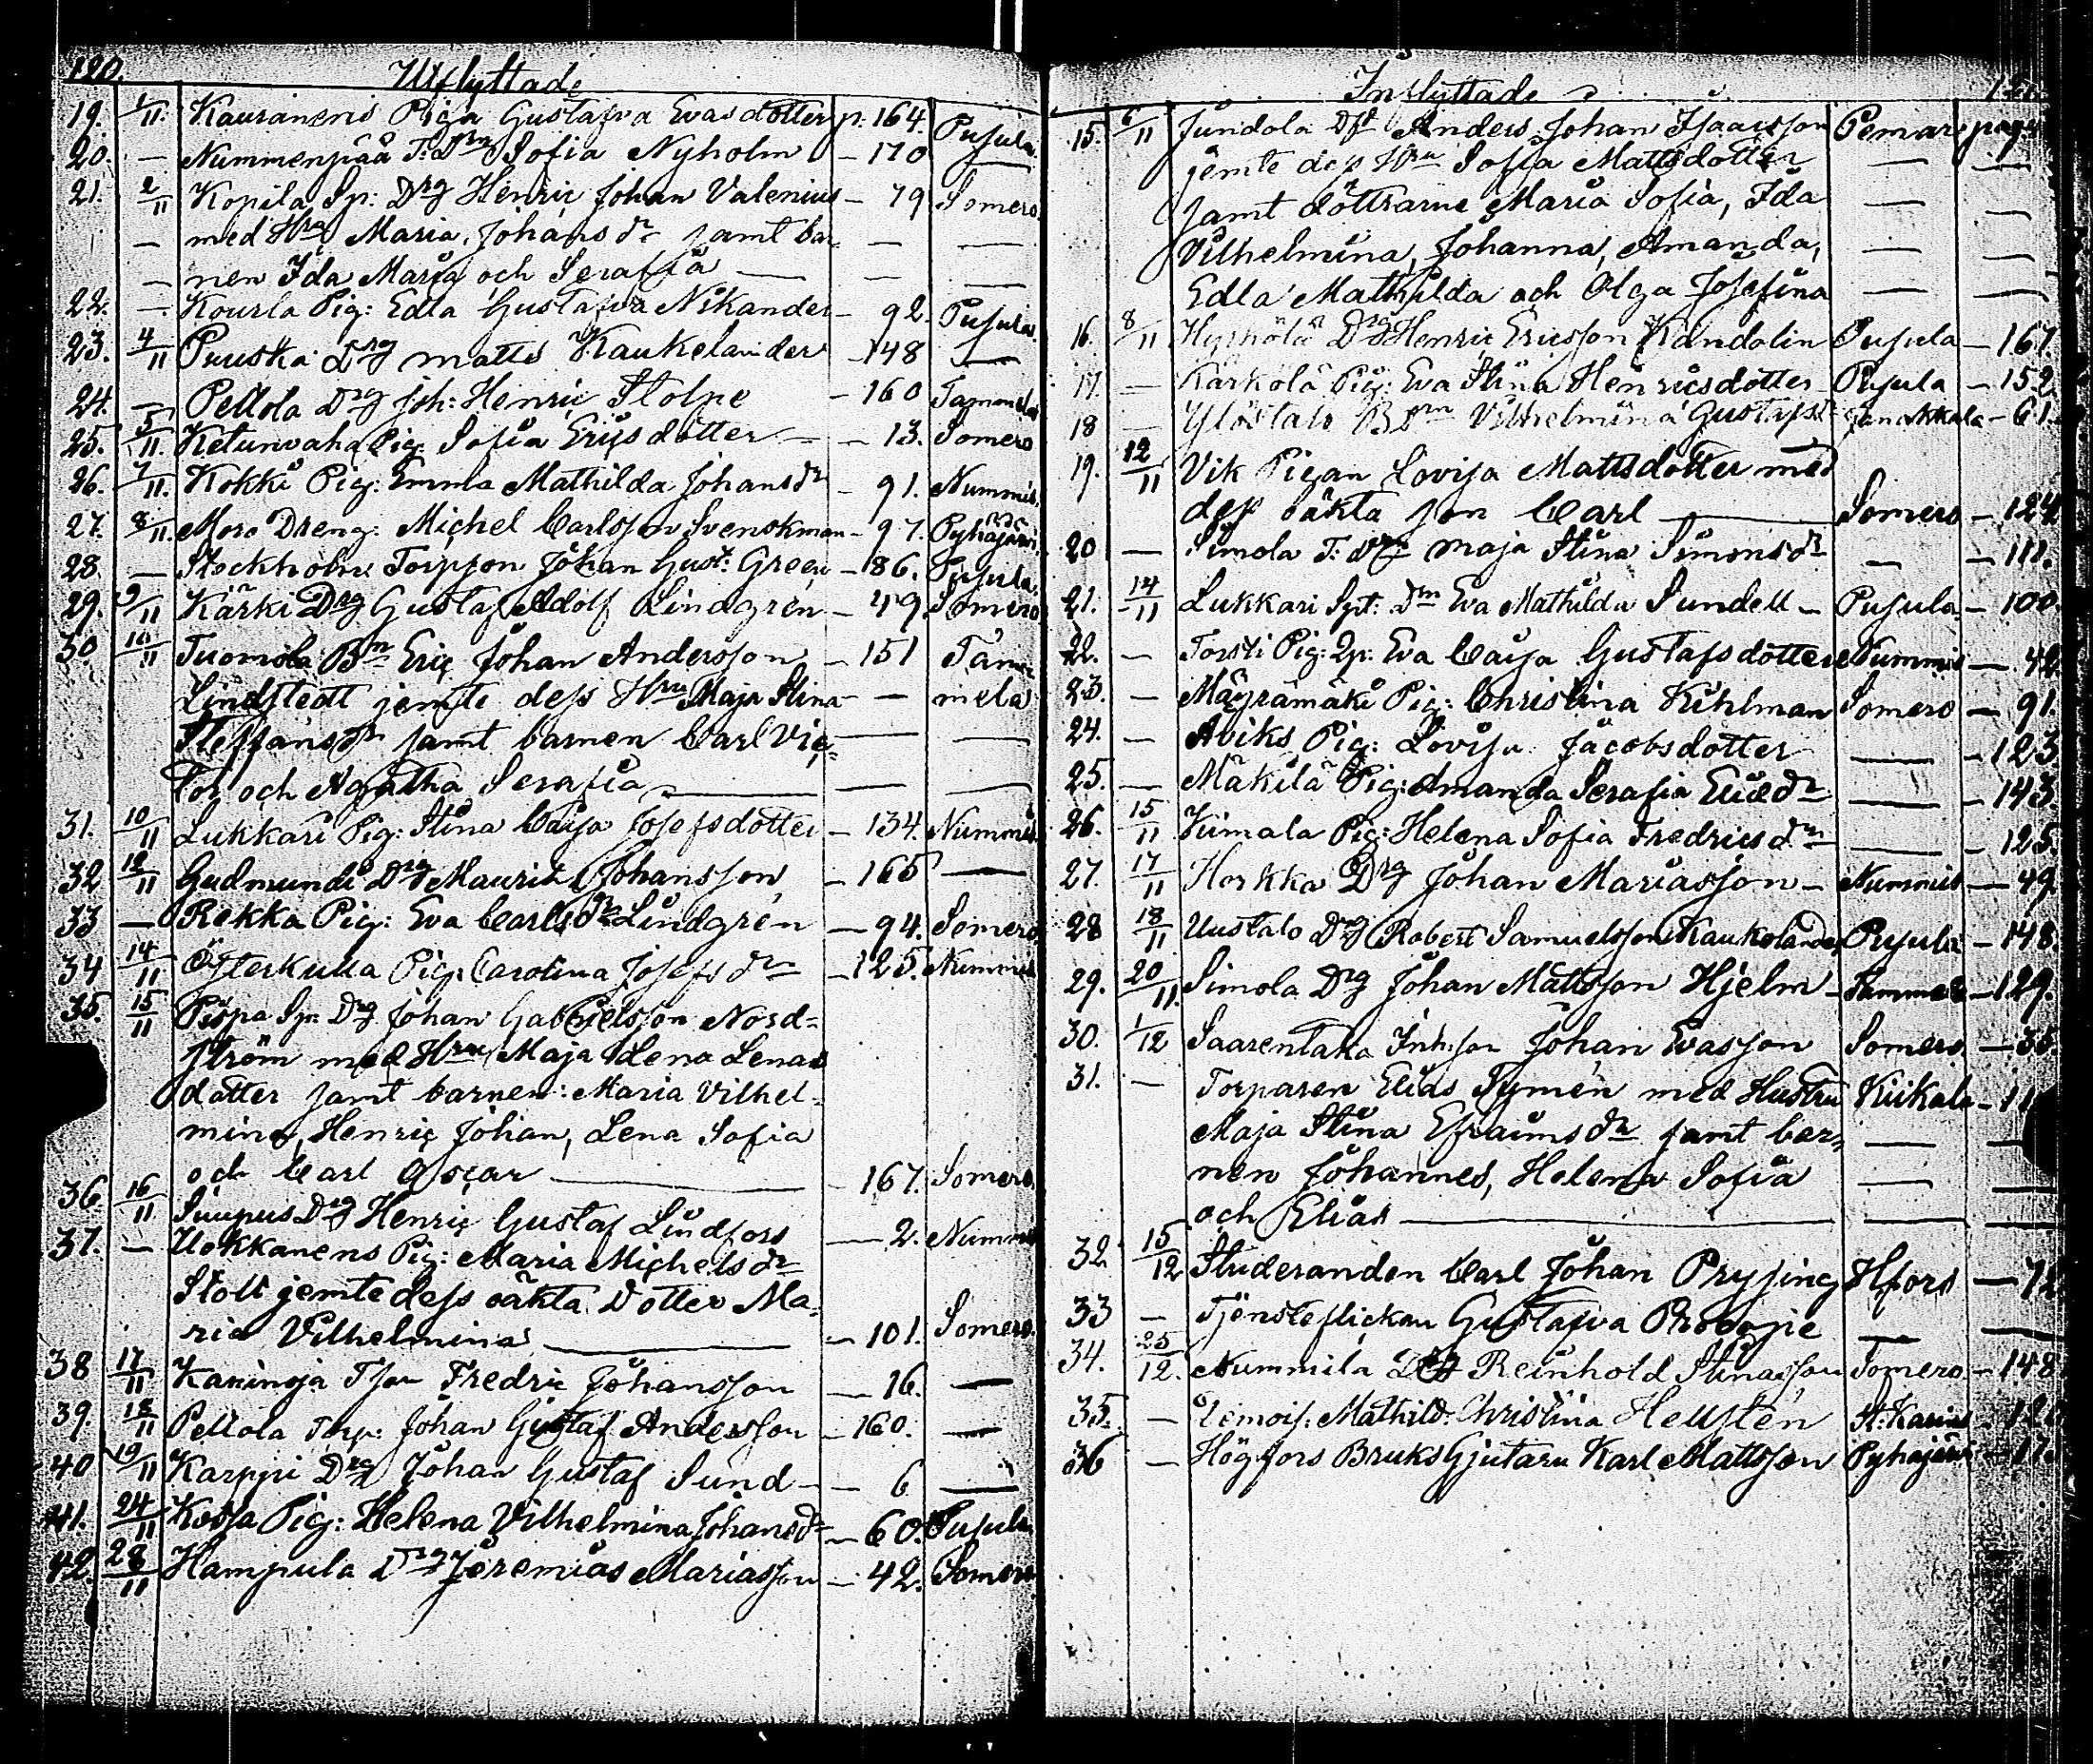 120.
Utflyttade
19. 1/11. Kauranens Piga Gustafva Evasdotter p. 164. Pusula
20. — Nummenpää T: Drn Sofia Nyholm — 170 —
21. 2/11 Kopila Sp: Drg Henric Johan Valenius — 79. Somero
— med Hru Maria Johans dr samt bar- — —
— nen Ida Maria och Serafia — — —
22. — Kourla Pig: Edla Gustafva Nikander — 92. Pusula
23. 4/11 Puuska Drg Matts Kaukelander — 148 —
24. — Pellola Drg Joh: Henric Stolpe — 160 Tammela
25. 5/11. Ketunvaha Pig. Sofia Ericsdotter — — 13. Somero
26. 7/11. Kokki Pig: Emma Mathilda Johans dr — 91. Nummis
27. 8/11. Moro Dreng: Michel Carlsson Svenskman — 97. Pyhäjärvi
28. — Stockholm Torpson Johan Gust: Green — 86. Pusula
29. 9/11 Kärki Drg Gustaf Adolf Lindgrén — 49. Somero
30. 10/11 Tuomola Bn Eric Johan Andersson — 151 Tam-
Lindstedt jemte dess Hru Maja Stina — — mela
Steffans dr samt barnen Carl Vic- — —
tor och Agatha Serafia — — —
31. 10/11 Lukkari Pig: Stina Caisa Josefsdotter — 134. Nummis
32 12/11 Gudmundi Drg Maurits Johansson — 165 —
33 — Rekka Pig: Eva Carls dr Lindgrén — 94. Somero
34 14/11 Österkulla Pig: Carolina Josefs dr — 125. Nummis
35. 15/11 Pispa Sp: Drg Johan Gabrielsson Nord-
ström med Hru Maja Lena Lenas
dotter samt barnen: Maria Vilhel-
mina, Henric Johan, Lena Sofia
och Carl Oscar — — 167. Somero.
36. 16/11 Suupus Drg Henric Gustaf Lindfors — 2. Nummis
37. — Uokkanens Pig: Maria Michels dr
Stolt jemte dess oäkta Dotter Ma-
ria Vilhelmina — — 101. Somero.
38 17/11 Kaninoja Tson Fredric Johansson — 16. —
39. 18/11 Pellola Torp: Johan Gustaf Andersson — 160. —
40 19/11 Karppi Drg Johan Gustaf Sund — — 6 —
41. 24/11 Kossa Pig: Helena Vilhelmina Johans dr — 60. Pusula
42. 28/11 Hampula Drg Jeremias Mariasson — 42. Somero
Inflyttade
15. 6/11 Jundola Anders Johan Isaacsson Pemar pag:
jemte dess Hru Sofia Mattsdotter — —
samt döttrarne Maria Sofia, Ida — —
Vilhelmina, Johanna, Amanda, — —
Edla Mathilda och Olga Josefina — —
16. 8/11 Hyrkölä Drg Henric Ericsson Kandolin Pusula — 167.
17. — Kärkölä Pig: Eva Stina Henricsdotter Pusula — 152
18 — Ylöstalo Vilhelmina Gustafsd Janakkala — 61.
19. 12/11 Vik Pigan Lovisa Mattsdotter med
dess oäkta son Carl — Somero — 124
20 — Simola T: Maja Stina Simons dr — — 111.
21. 14/11 Lukkari Spt: Dm Eva Mathilda Sundell — Pusula — 100.
22. — Torsti Pig: Eva Caisa Gustafsdotter Nummis — 42
23. — Mäyrämäki Pig: Christina Kihlman Somero — 91.
24. — Aviks Pig: Lovisa Jacobsdotter — — 123
25. — Mäkilä Pig: Amanda Serafia dr — — 143.
26. 15/11 Viimala Pig: Helena Sofia Fredrics dr — — 125.
27. 17/11 Horkka Drg Johan Mariasson — Nummis — 49.
28 18/11 Uustalo Drg Robert Samuelsson Kaukolander Pusula — 148.
29. 20/11. Simola Drg Johan Mattsson Hjelm — Tammela — 129.
30. 1/12 Saarentaka Inh:son Johan Evasson Somero — 35
31. — Torparen Elias Symén med Hustru Kiikala — 11
Maja Stina Efraims dr samt bar- — —
nen Johannes, Helena Sofia — —
och Elias — — —
32 15/12 Studeranden Carl Johan Prysing Hfors — 72
33 — Tjensteflickan Gustafva — —
34. 25/12. Nummila Reinhold Stinasson Somero — 148
35. — Demois. Mathild: Christina Hellstén St: Karins
36 — Högfors Bruks Gjutaren Karl Mattsson Pyhäjärvi — 17.